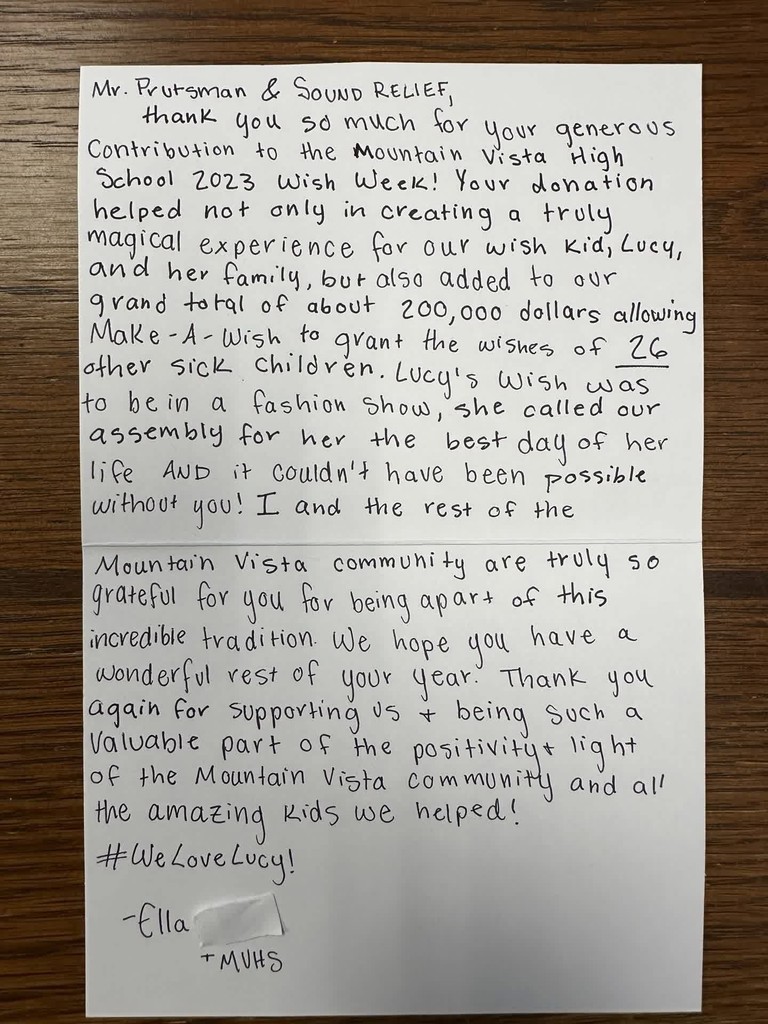 Mr. Prutsman & SOUND RELIEF,
thank you so much for your generous
Contribution to the Mountain Vista High
School 2023 Wish Week! Your donation
helped not only in creating a truly
magical experience for our wish kid, Lucy,
and her family, but also added to our
grand total of about 200,000 dollars allowing
Make-A-Wish to grant the wishes of 26
other sick children. Lucy's wish was
to be in a fashion show, she called our
assembly for her the best day of her
life AND it couldn't have been possible
without you! I and the rest of the
Mountain Vista community are truly so
grateful for you for being apart of this
incredible tradition. We hope you have a
wonderful rest of your year. Thank you
again for supporting us + being such a
valuable part of the positivity + light
of the Mountain Vista community and all
the amazing kids we helped!
#WeLoveLucy!
-Ella
+ MVHS